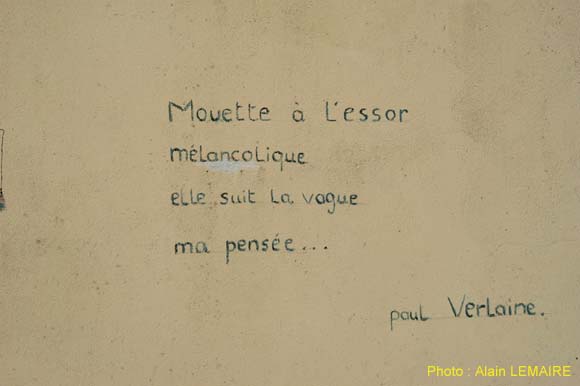 Mouette à l'essor
mélancolique
elle suit la vague
ma pensée...
paul Verlaine.
Photo : Alain LEMAIRE